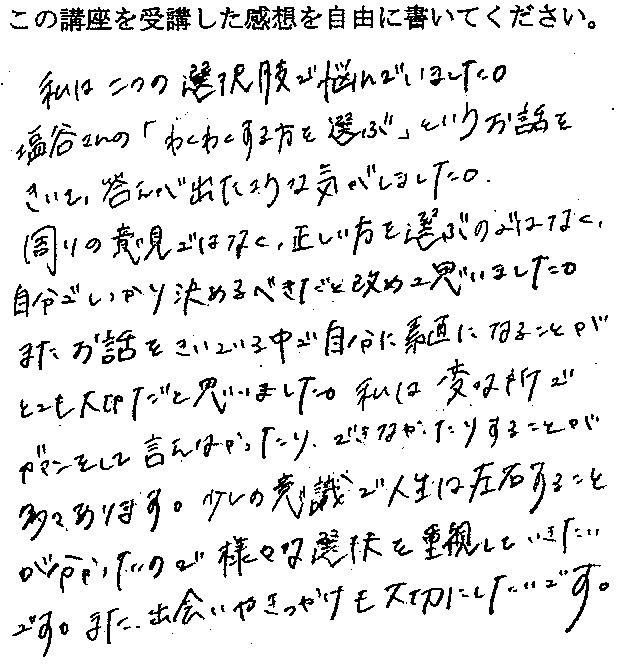 この講座を受講した感想を自由に書いてください。
私は二つの選択肢で悩んでいました。
塩谷さんの「わくわくする方を選ぶ」というお話を
きいて、答えが出たような気がしました。
周りの意見ではなく、正しい方を選ぶのではなく、
自分でしっかり決めるべきだと改めて思いました。
またお話をきいている中で自分に素直になることが
とても大切だと思いました。私は変な所で
ガマンをして言えなかったり、できなかったりすることが
多々あります。少しの意識で人生は左右すること
が分かったので様々な選択を重視していきたい
です。また、出会いやきっかけも大切にしたいです。